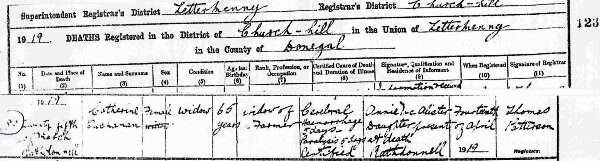 Superintendent Registrar's District Letterkenny Registrar's District Church-hill
1919. DEATHS Registered in the District of Church-hill in the Union of Letterkenny
in the County of Donegal
123
No. Date and Place of Death Name and Surname Sex Condition Age last Birthday Rank, Profession, or Occupation Certified Cause of Death and Duration of Illness Signature, Qualification and Residence of Informant When Registered Signature of Registrar
(1) (2) (3) (4) (5) (6) (7) (8) (9) (10) (11)
1919 Catherine Female widow 65 widow of Cerebral Annie Fourteenth Thomas
March Buchanan years Farmer Haemorrhage Daughter present of April Patterson
days Paralysis days at death
Rathdonnell Certified Rathdonnell 1919 Registrar.